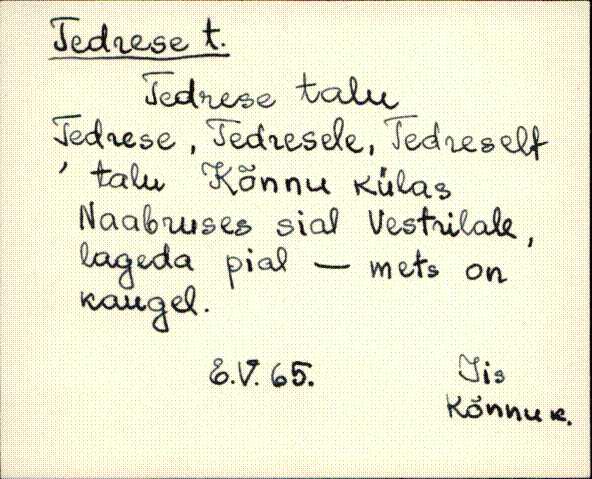 Tedrese t.
Tedrese talu
Tedrese, Tedresele, Tedreselt
' talu Kõnnu külas
Naabruses sial Vestrilale,
lageda pial — mets on
kaugel.
E.V. 65. Iis
Kõnnu k.